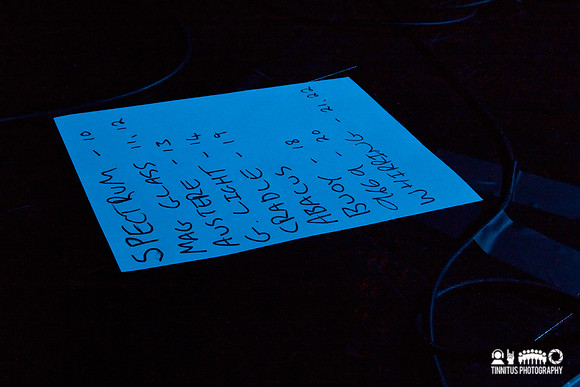 SPECTRUM - 10
MAG GLASS - 11, 12
AUSTERE - 13
G. LIGHT - 14
CRADLE - 19
ABACUS
BUOY - 18
- 20
WHIRRING - 21, 22
TINNITUS PHOTOGRAPHY